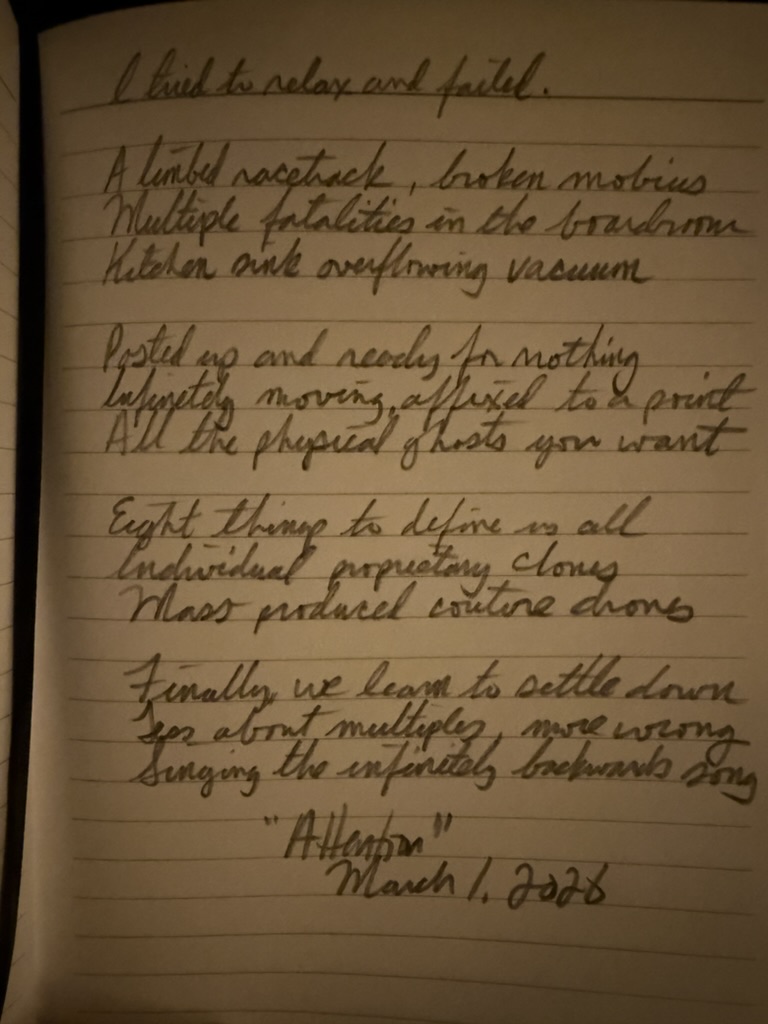 I tried to relax and failed.
A limbed racetrack, broken mobius
Multiple fatalities in the boardroom
Kitchen sink overflowing vacuum
Posted up and ready for nothing
Infinitely moving, affixed to a point
All the physical ghosts you want
Eight things to define us all
Individual proprietary clones
Mass produced couture drones
Finally, we learn to settle down
about multiples, more wrong
Singing the infinitely backwards song
"Attention"
March 1, 2026